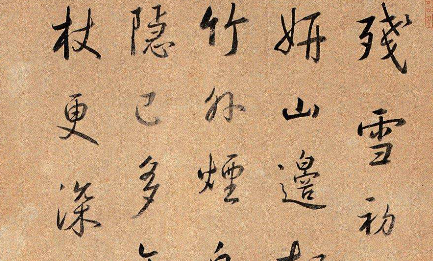 殘雪初
妍山邊
竹外煙
隱已多
杖更深